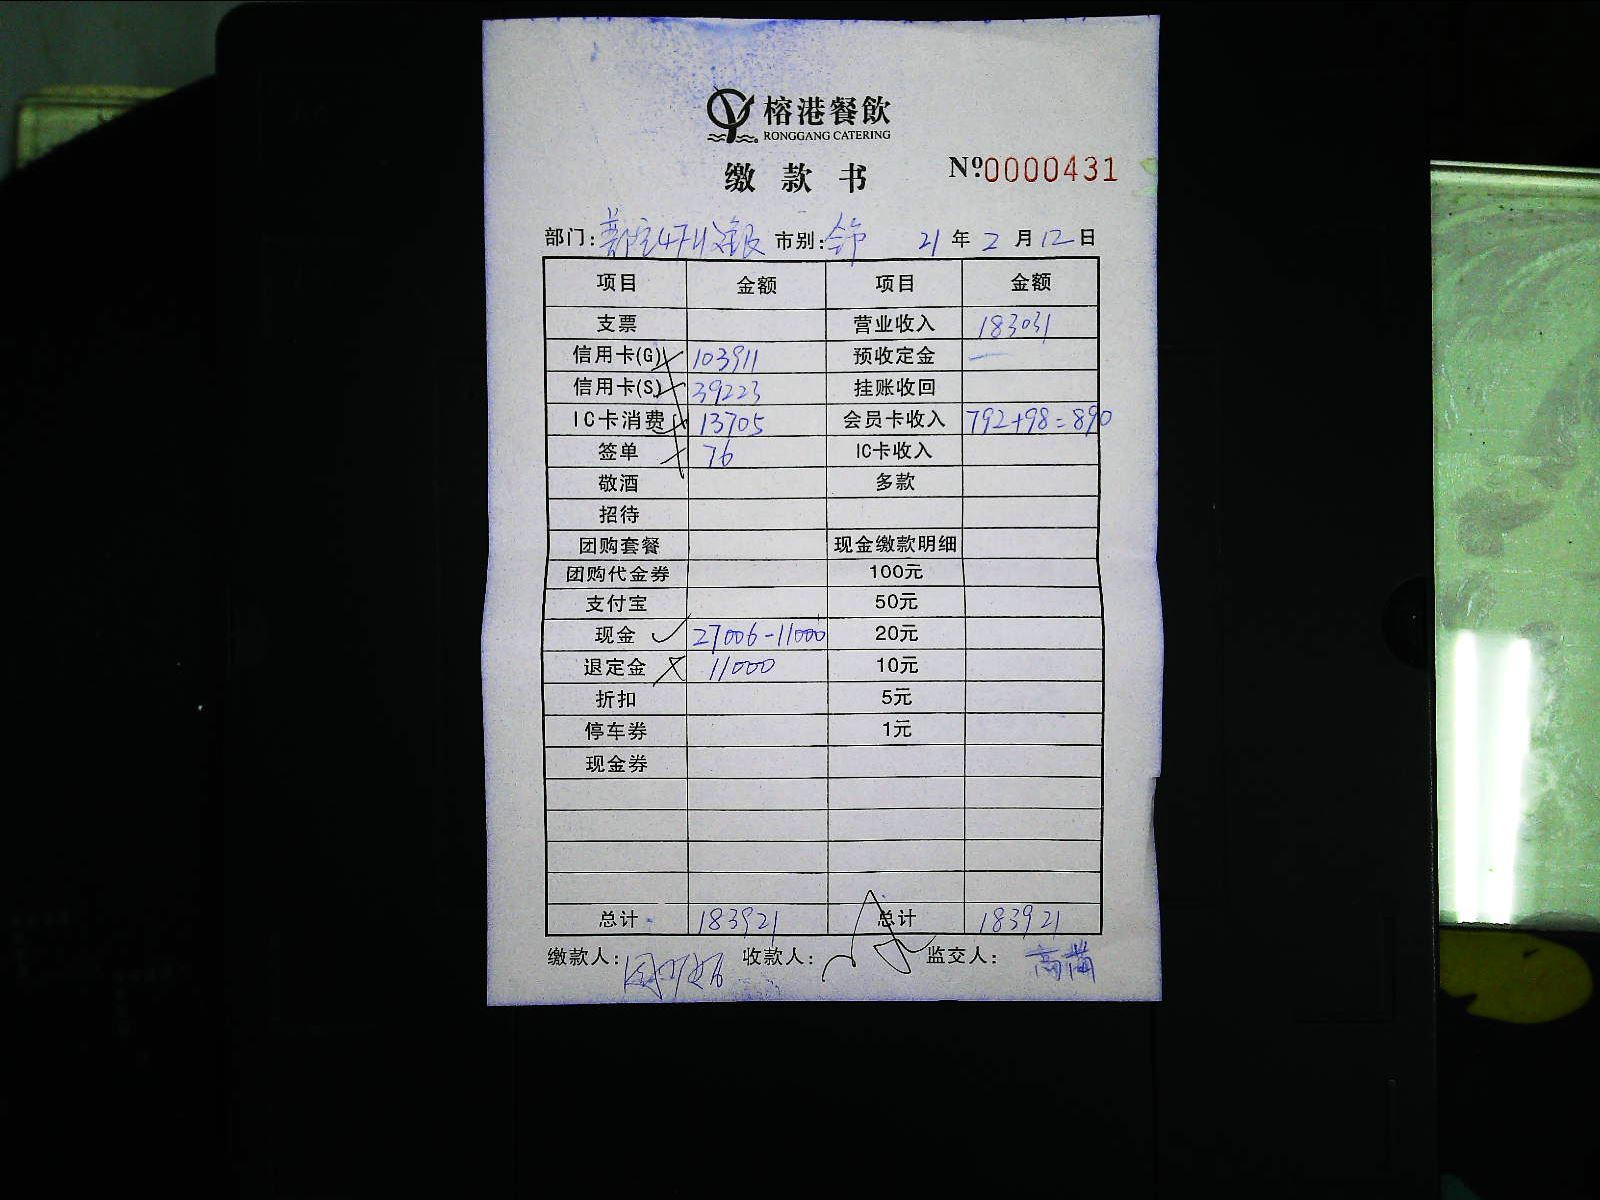 榕港餐飲
RONGGANG CATERING
缴款书 №0000431
部门: 市别: 21年2月12日
项目 金额 项目 金额
支票 营业收入 183031
信用卡(G) 103911 预收定金 —
信用卡(S) 39223 挂账收回
IC卡消费 13705 会员卡收入 792+98=890
签单 76 IC卡收入
敬酒 多款
招待
团购套餐 现金缴款明细
团购代金券 100元
支付宝 50元
现金 ✓ 27006-11000 20元
退定金 11000 10元
折扣 5元
停车券 1元
现金券
总计 183921 总计 183921
缴款人: 收款人: 监交人: